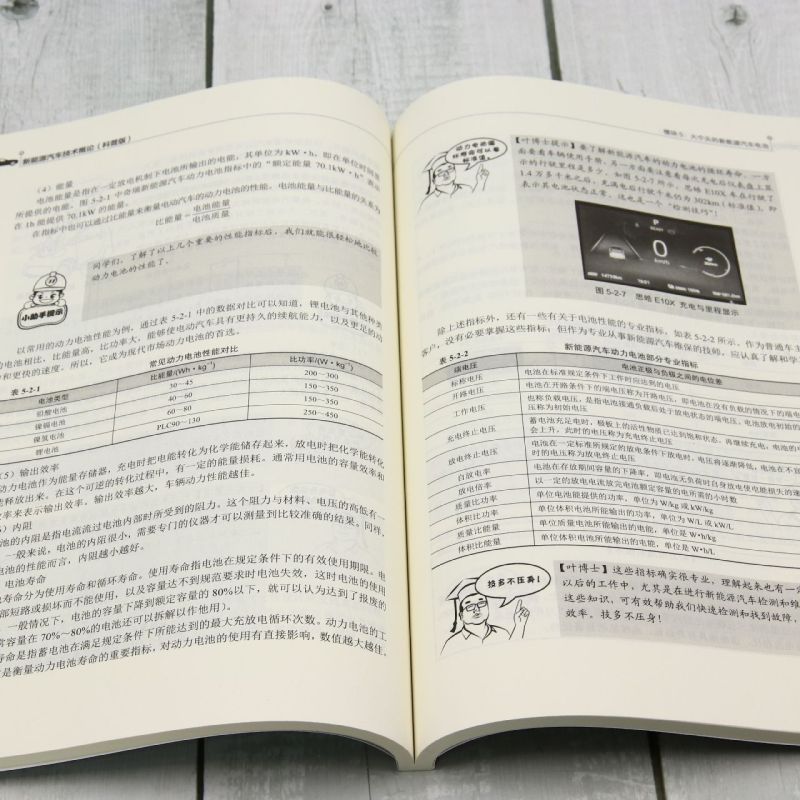 新能源汽车技术概论（科普版）
（4）能量
电池能量是指在一定放电机制下电池所输出的电能，其单位为 kW·h，即在单位时间里
所提供的电能。图 5-2-1 中奇瑞新能源汽车动力电池指标中的“额定能量 70.1kW·h”表示
在 1h 能提供 70.1kW 的能量。
在指标中也可以通过比能量来衡量电动汽车的动力电池的性能。电池能量与比能量的关系为
比能量 = 电池能量
电池质量
同学们，了解了以上几个重要的性能指标后，我们就能很轻松地比较
动力电池的性能了。
小助手提示
以常用的动力电池性能为例，通过表 5-2-1 中的数据对比可以知道，锂电池与其他种类
的电池相比，比能量高，比功率大，能够使电动汽车具有更持久的续航能力，以及更足的动
力和更快的速度。所以，它成为现代市场动力电池的首选。
表 5-2-1 常见动力电池性能对比
电池类型 比能量/(Wh·kg⁻¹) 比功率/(W·kg⁻¹)
铅酸电池 30~45 200~300
镍镉电池 40~60 150~350
镍氢电池 60~80 150~350
锂电池 PLC90~130 250~450
（5）输出效率
动力电池作为能量存储器，充电时把电能转化为化学能储存起来，放电时把化学能转化
释放出来。在这个可逆的转化过程中，有一定的能量损耗。通常用电池的容量效率和
效率来表示输出效率。输出效率越大，车辆动力性能越佳。
内阻
池的内阻是指电流流过电池内部时所受到的阻力。这个阻力与材料、电压的高低有一
一般来说，电池的内阻很小，需要专门的仪器才可以测量到比较准确的结果。同样，
电池的性能而言，内阻越小越好。
电池寿命
寿命分为使用寿命和循环寿命。使用寿命指电池在规定条件下的有效使用期限。电
部短路或损坏而不能使用，以及容量达不到规范要求时电池失效，这时电池的使用
一般情况下，电池的容量下降到额定容量的 80%以下，就可以认为达到了报废的
常容量在 70%~80%的电池还可以拆解以作他用）。
寿命是指蓄电池在满足规定条件下所能达到的最大充放电循环次数。动力电池的工
是衡量动力电池寿命的重要指标，对动力电池的使用有直接影响，数值越大越佳。
模块 5 大个头的新能源汽车电池
动力电池循
环寿命可以看
标准值。
【叶博士提示】要了解新能源汽车的动力电池的循环寿命，一方
面要看车辆使用手册，另一方面要注意看每次充电后仪表盘上显
示的行驶里程是多少，如图 5-2-7 所示，思皓 E10X 车在行驶了
1.4 万多千米之后，充满电后行驶千米仍为 302km（标准值），即
表示其电池状态正常，这也是一个“检测技巧”！
P
READY
0
km/h
图 5-2-7 思皓 E10X 充电与里程显示
除上述指标外，还有一些有关于电池性能的专业指标，如表 5-2-2 所示。作为普通车主
客户，没有必要掌握这些指标，但作为专业从事新能源汽车维保的技师，应认真了解和学
表 5-2-2 新能源汽车动力电池部分专业指标
端电压 电池正极与负极之间的电位差
标称电压 电池在标准规定条件下工作时应达到的电压
开路电压 电池在开路条件下的端电压称为开路电压，即电池在没有负载的情况下的端电
工作电压 也称负载电压，是指电池接通负载后处于放电状态的端电压。电池放电初始的
压称为初始电压
充电终止电压 蓄电池充足电时，极板上的活性物质已达到饱和状态，再继续充电，电池的电
会上升，此时的电压称为充电终止电压
放电终止电压 电池在一定标准所规定的放电条件下放电时，电压将逐渐降低，电池在不宜
时的电压称为放电终止电压
自放电率 电池在存放期间容量的下降率，即电池无负荷时自身放电使电能损失的速
放电倍率 以一定的放电电流放完电池额定容量的电所需的小时数
质量比功率 单位电池能提供的功率，单位为 W/kg 或 kW/kg
体积比功率 单位体积电池所能输出的功率，单位为 W/L 或 kW/L
质量比能量 单位质量电池所能输出的电能，单位是 W•h/kg
体积比能量 单位体积电池所能输出的电能，单位是 W•h/L
技多不压身！
【叶博士】这些指标确实很专业，理解起来也有一
以后的工作中，尤其是在进行新能源汽车检测和维
这些知识，可有效帮助我们快速检测和找到故障，
效率。技多不压身！